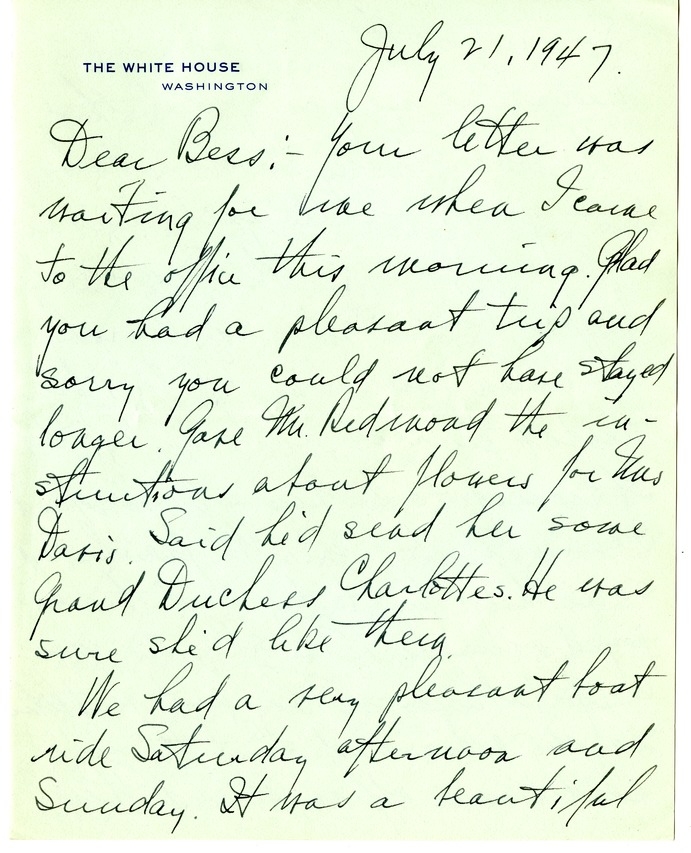 THE WHITE HOUSE
WASHINGTON
July 21, 1947.
Dear Bess:- Your letter was
waiting for me when I came
to the office this morning. Glad
you had a pleasant trip and
sorry you could not have stayed
longer. Gave Mr. Redmond the in-
structions about flowers for Mrs
Davis. Said he'd send her some
Grand Duchess Charlottes. He was
sure she'd like them.
We had a very pleasant boat
ride Saturday afternoon and
Sunday. It was a beautiful